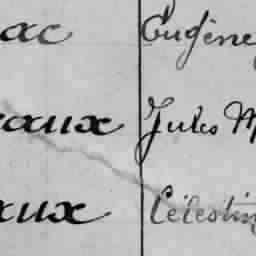 ac Eugène
eaux Jules M
aux Célestin